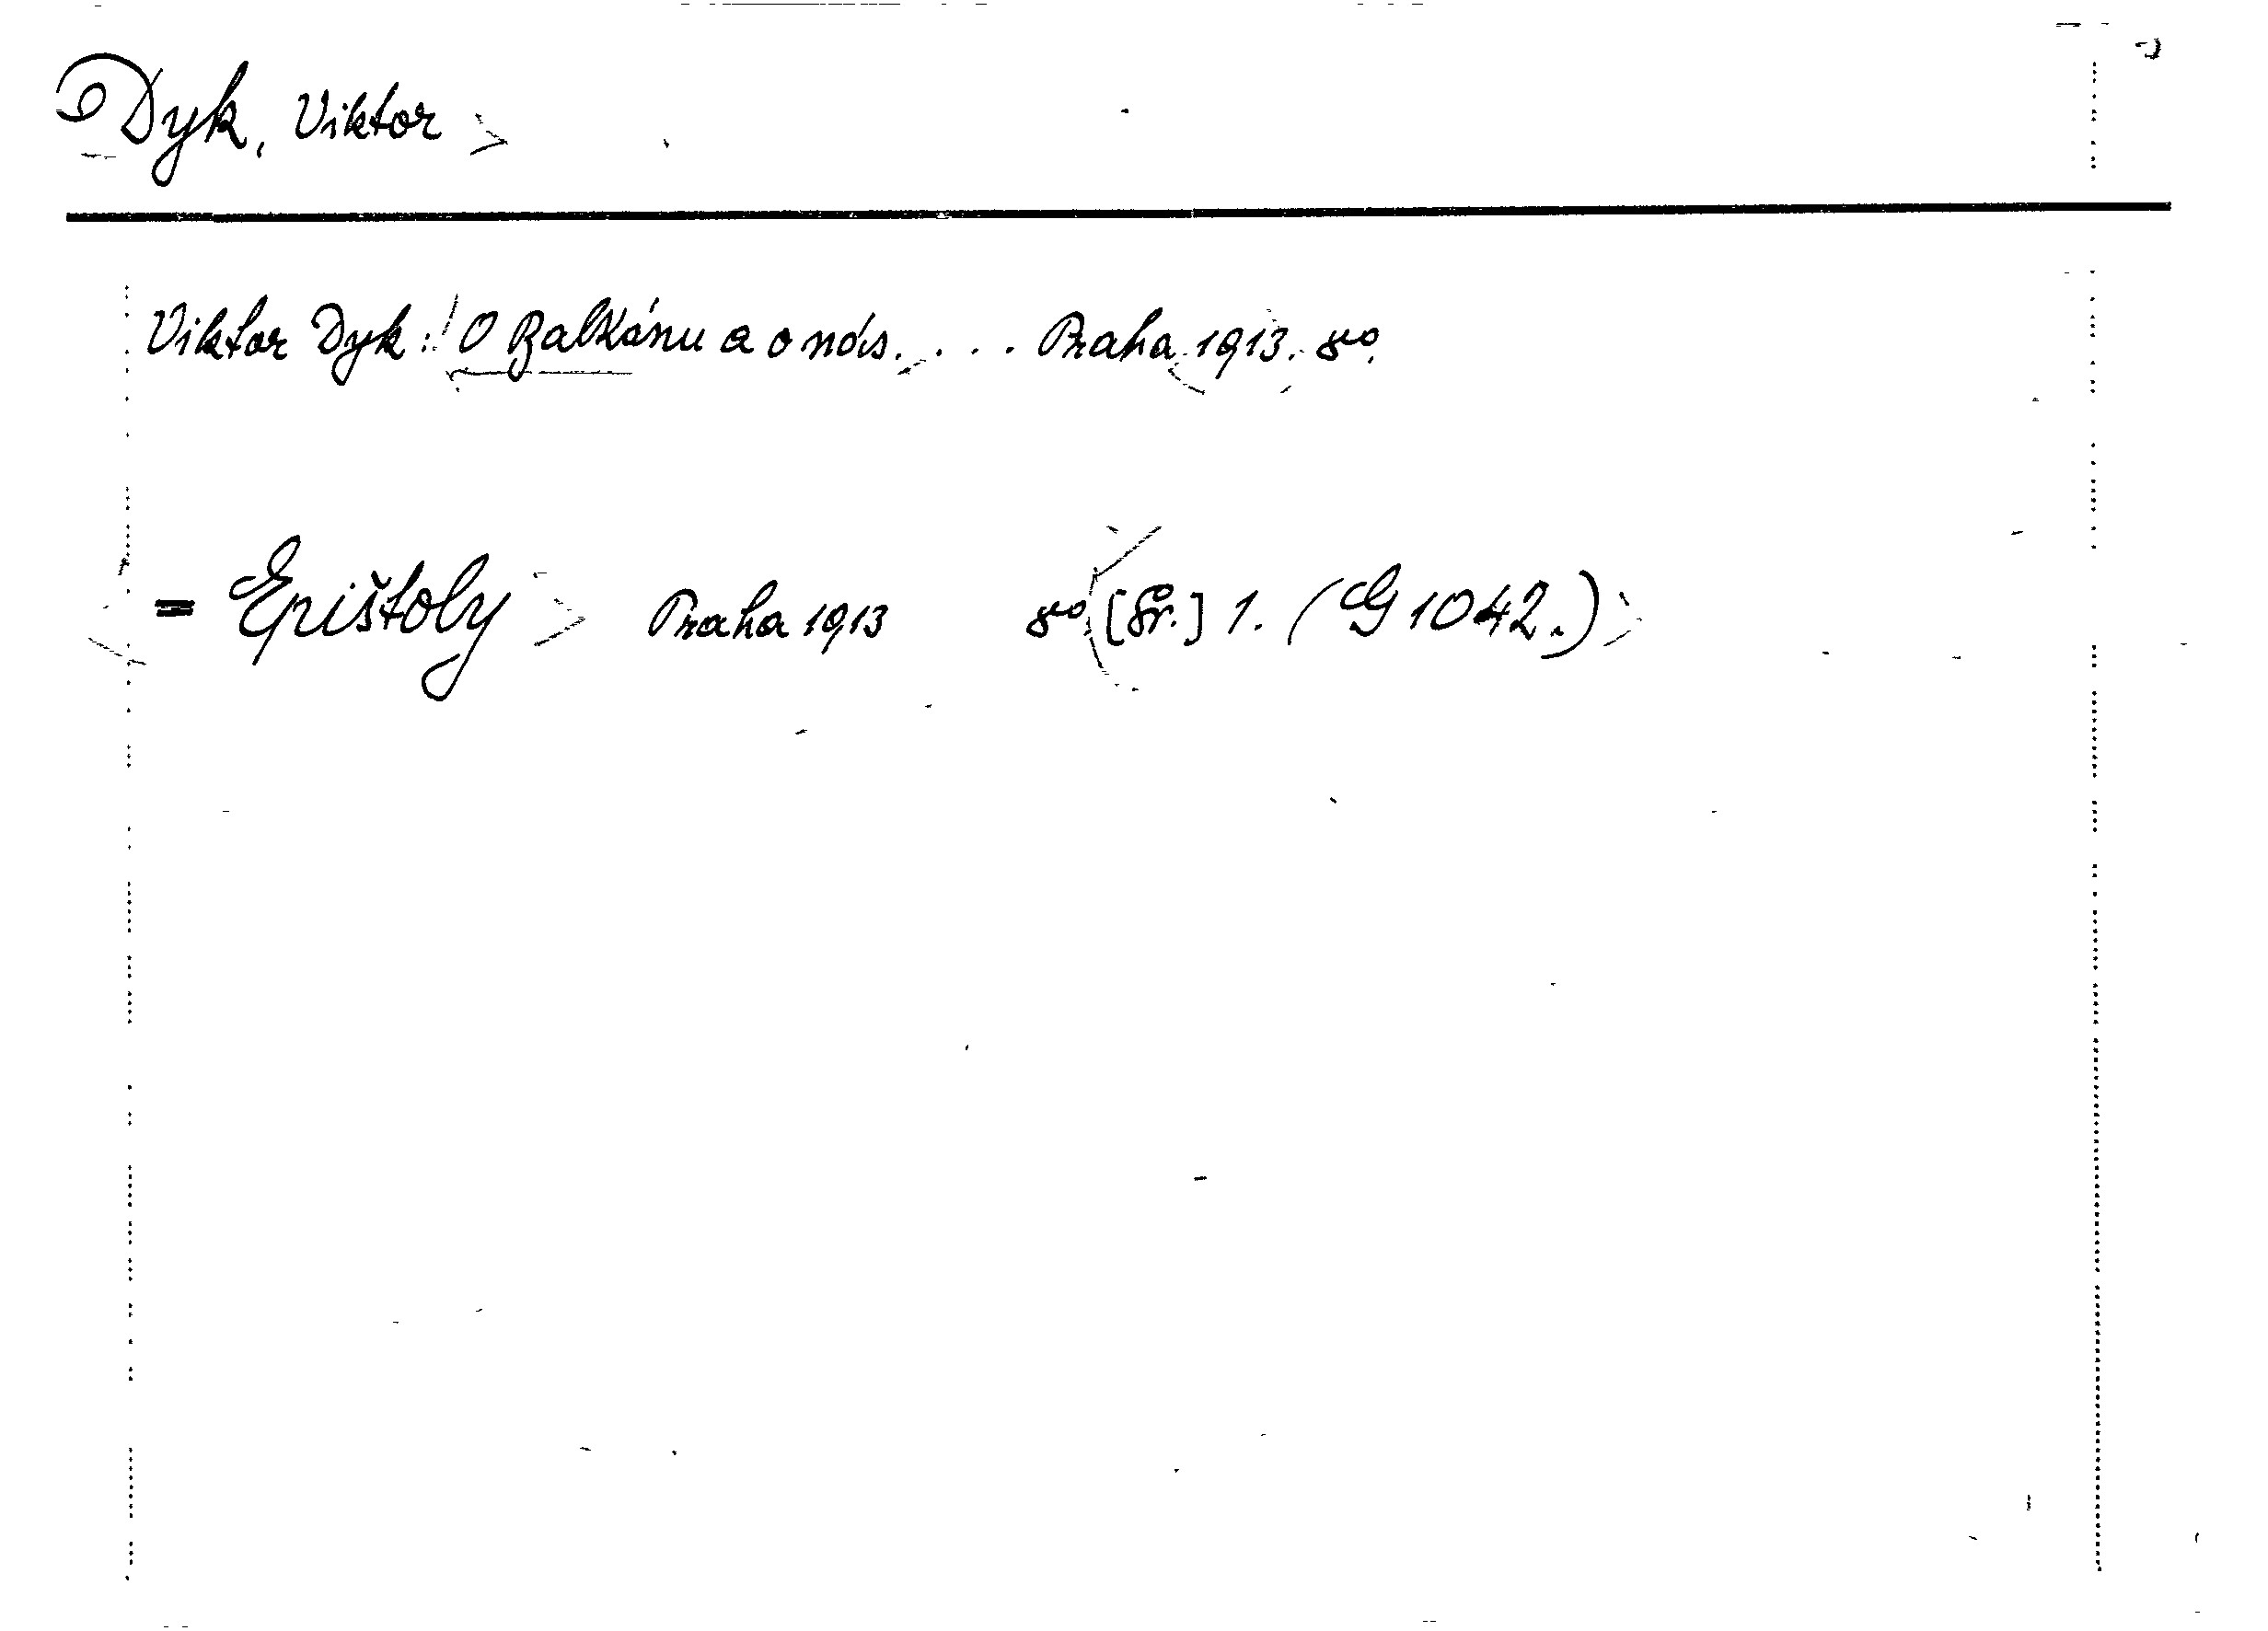 Dyk, Viktor
Viktor Dyk: O Balkánu a o nás. . . . Praha 1913. 8vo.
= Epištoly Praha 1913 8vo. [Sv.] 1. (G 1042.)